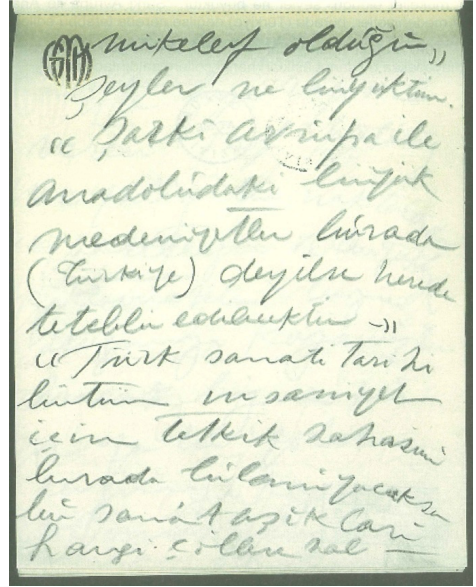 mükellef olduğu"
Şeyler ne büyüktür.
" Şarki avrupa ile
anadoludaki büyük
medeniyetler burada
(Türkiye) deyilse nerede
tetebbu edilecektir -"
" Türk sanati Tarihi
bütün insaniyet
için tetkik sahasını
burada bulamıyacaksa
bu sanat aşıkları
hangi